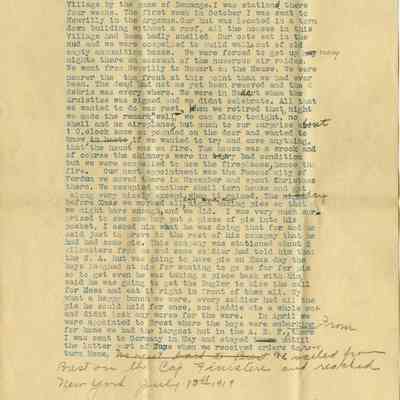 Village by the name of Demange. I was stationed there
four weeks. The first week in October I was sent to
in the Argonne. Our hut was located in a torn
down building without a roof, all the houses in this
village had been badly shelled. Our cots set in the
mud and we were compelled to build walks out of old
empty ammunition boxes. We were forced to get up many
nights there on account of the numerous air raids.
We went from to on the Meuse. We were
nearer the the front at this point than we had ever
been. The dead had not as yet been removed and the
debris was every where. We were in when the
Armistice was signed and we didnt celebrate. All that
we wanted to do was rest, when we retired that night
we made the remark "well we can sleep tonight, no
shell and no airplane" but much to our surprise about
1 O,clock some one pounded on the door and wanted to
know if we wanted to try and save anything,
that the house was on fire. The house was a wreck and
of course the chimneys were in very bad condition
but we were compelled to use the fireplaces, hence the
fire. Our next appointment was the famous city of
Verdun we moved there in November and spent Christmas
there. We occupied another shell torn house and
along very nicely except, when it rained. The
before Xmas we worked all night making pies so that
we might have enough, and we did. I was very much sur-
prised to see one boy put a piece of pie into his
pocket, I asked him what he was doing that for and he
said just to prove to the rest of his company that he
had had some pie. This company was stationed about
kilometers from us and some soldier had told him that
the S. A. hut was going to have pie on Xmas day the
boys laughed at him for wanting to go so far for pie
so to get even he was taking a piece back with him,
said he was going to get the Bugler to blow the call
for Mess and eat it right in front of them all. My
what a happy bunch we were, every soldier had all the
pie he could hold for once, one laddie ate a whole one
and didnt look any worse for the ware. In April we
were appointed to Brest where the boys were
for home we had the largest hut in the A. E. F. From
I was sent to Germany in May and stayed until
the latter part of June when we received orders to
turn home, We sailed from
Brest on the Cap Finisterre and reached
New York July 13th, 1919